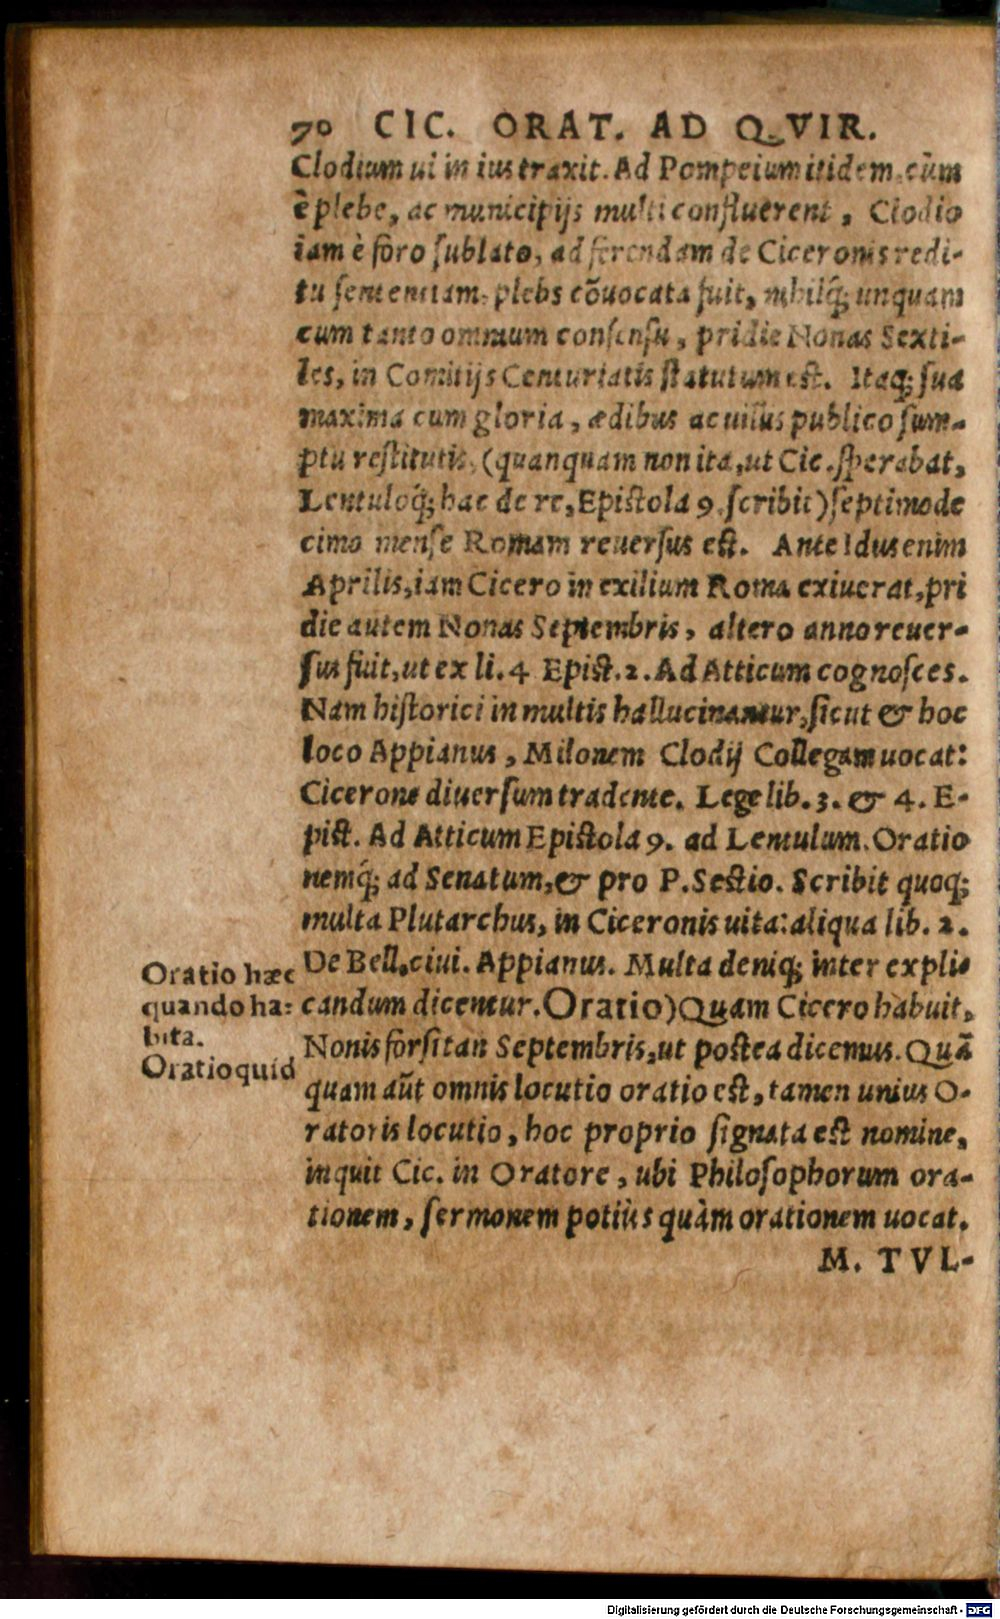 70 CIC. ORAT. AD QVIR.
Clodium ui in ius traxit. Ad Pompeium itidem, cùm
è plebe, ac municipijs multi confluerent, Clodio
iam è foro sublato, ad ferendam de Ciceronis redi-
tu sententiam, plebs cõuocata fuit, nihilq́; unquam
cum tanto omnium consensu, pridie Nonas Sexti-
les, in Comitijs Centuriatis statutum est. Itaq; sua
maxima cum gloria, ædibus ac uillis publico sum-
ptu restitutis, (quanquam non ita, ut Cic. sperabat,
Lentuloq́; hac de re, Epistola 9. scribit) septimode
cimo mense Romam reuersus est. Ante Idus enim
Aprilis, iam Cicero in exilium Roma exiuerat, pri
die autem Nonas Septembris, altero anno reuer-
sus fuit, ut ex li. 4 Epist. 2. Ad Atticum cognosces.
Nam historici in multis hallucinantur, sicut & hoc
loco Appianus, Milonem Clodij Collegam uocat:
Cicerone diuersum tradente. Lege lib. 3. & 4. E-
pist. Ad Atticum Epistola 9. ad Lentulum. Oratio
nemq́; ad Senatum, & pro P. Sestio. Scribit quoq;
multa Plutarchus, in Ciceronis uita: aliqua lib. 2.
De Bell. ciui. Appianus. Multa deniq; inter expli-
candum dicentur. Oratio) Quam Cicero habuit,
Nonis forsitan Septembris, ut postea dicemus. Quã
quam aũt omnis locutio oratio est, tamen unius O-
ratoris locutio, hoc proprio signata est nomine,
inquit Cic. in Oratore, ubi Philosophorum ora-
tionem, sermonem potiùs quàm orationem uocat.
M. TVL-
Oratio hæc
quando ha-
bita.
Oratio quid
Digitalisierung gefördert durch die Deutsche Forschungsgemeinschaft - DFG